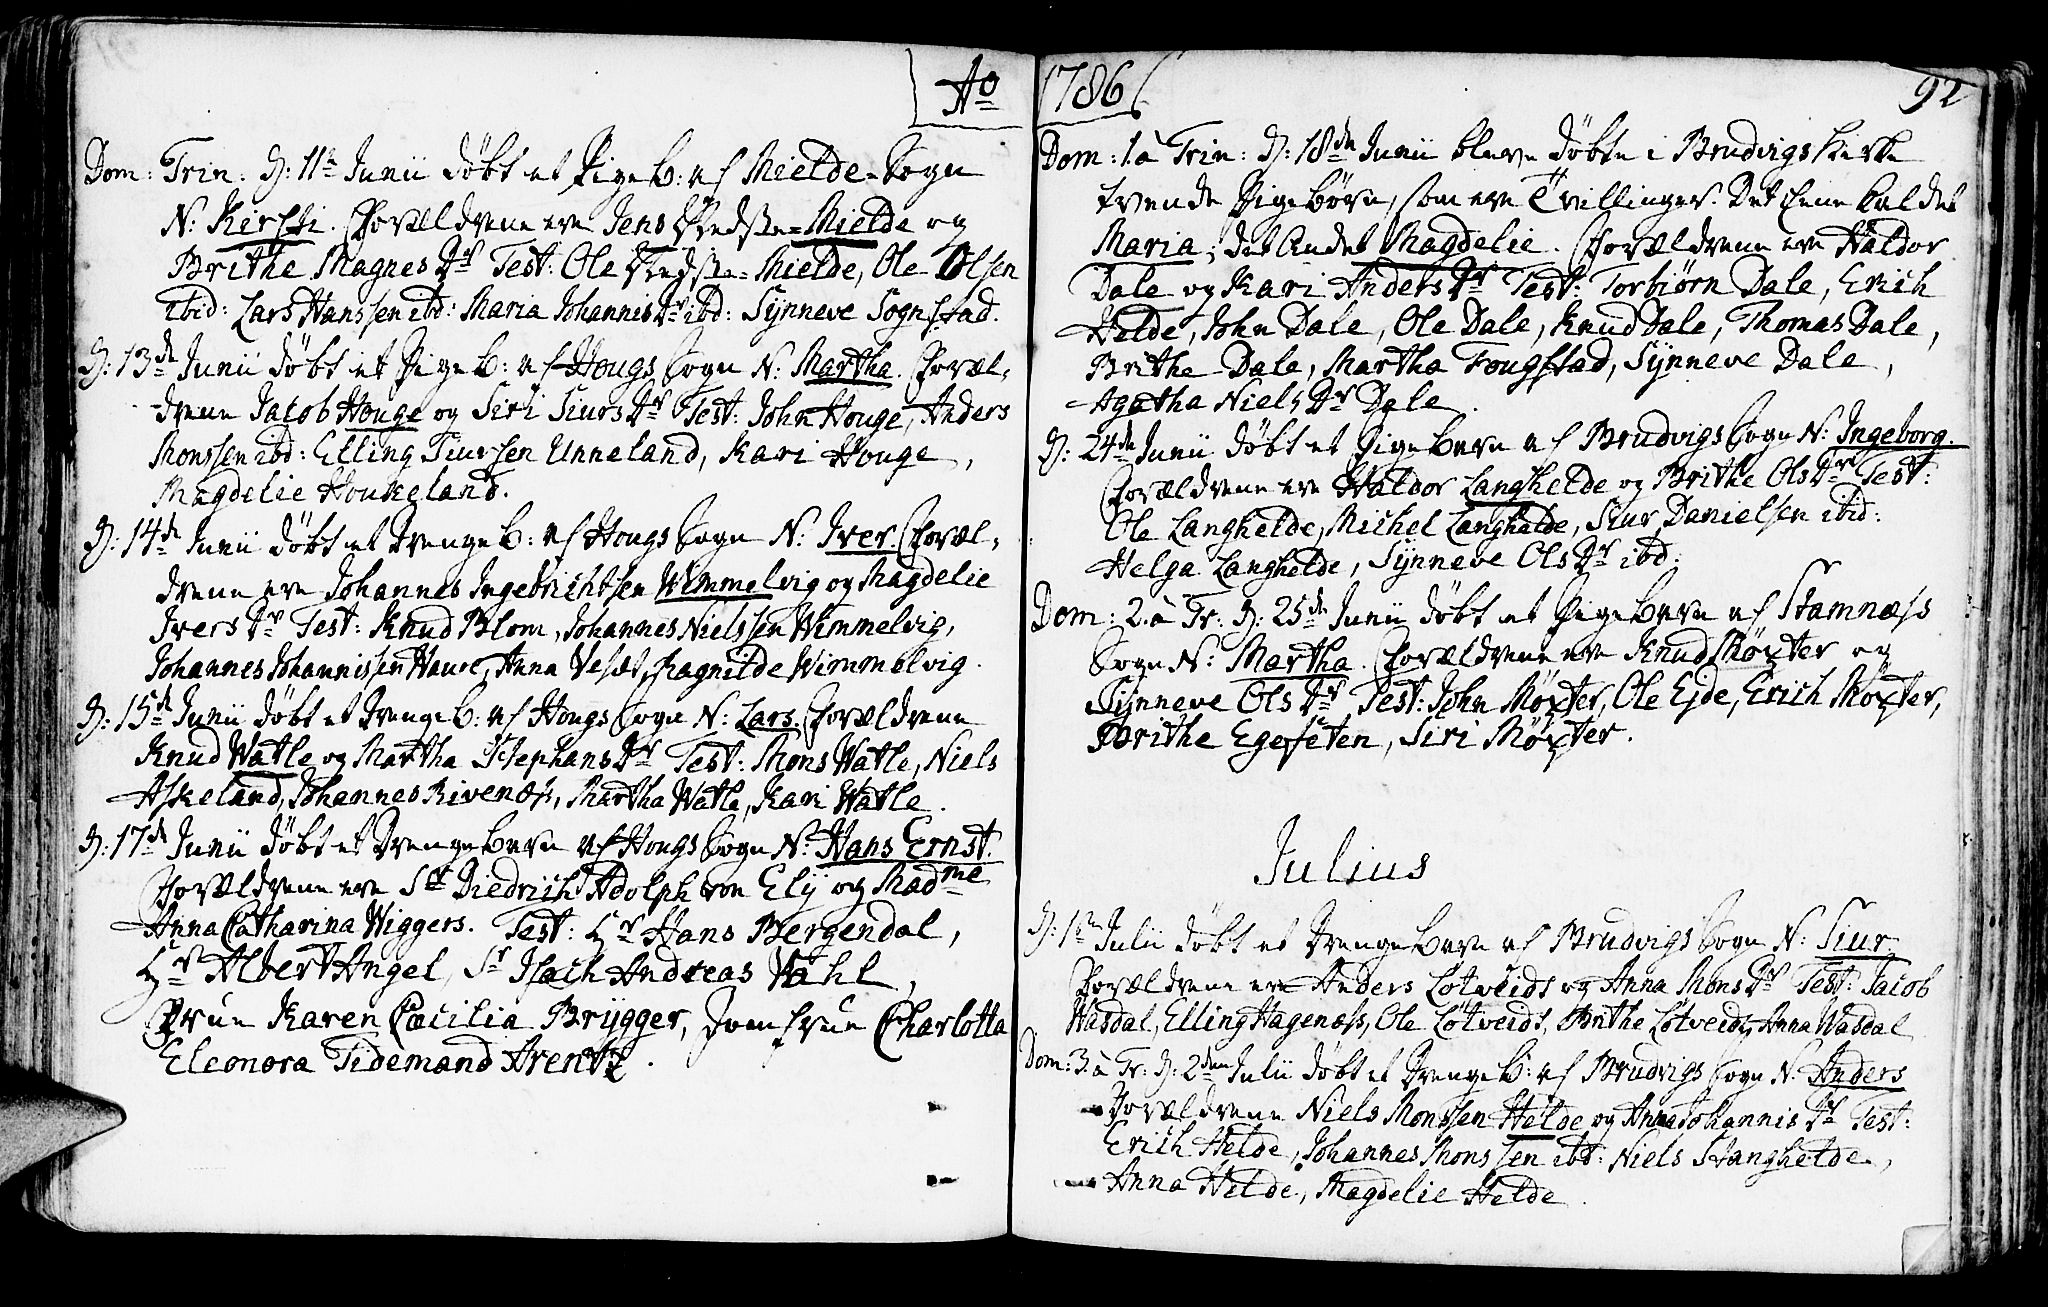 Ao 1786
Dom: Trin: D: 11te Junii døbt et Pigeb: af Mielde-Sogn
N: Kirsti. Forældrene ere Jens Mielde og
Brithe MagnesDr Test: Ole Mielde, Ole Olsen
ibid: Lars Hanssen ibd: Maria JohannisDr ibd: Synneve Sognstad.
D: 13de Junii døbt et Pigeb: af Hougs Sogn N: Martha. Foræl-
drene Jacob Houge og Siri SiursDr Test: John Houge, Anders
Monssen ibd: Elling Siursen Unneland, Kari Houge,
Magdelie Houkeland.
D: 14de Junii døbt et Drengeb: af Hougs Sogn N: Iver. Foræl-
drene ere Johannes Ingebrichtsen Wimmelvig og Magdelie
IversDr Test: Knud Blom, Johannes Nielssen Wimmelvig,
Johannes Johannissen Haure, Anna Vesæt, Ragnilde Wimmelvig.
D: 15de Junii døbt et Drengeb: af Hougs Sogn N: Lars. Forældrene
Knud Watle og Martha StephansDr Test: Mons Watle, Niels
Askeland, Johannes Rivenæss, Martha Watle, Kari Watle.
D: 17de Junii døbt et Drengebarn af Hougs Sogn N: Hans Ernst.
Forældrene ere Sr Diedrich Adolph von Ely og Madme
Anna Catharina Wiggers. Test: Hr Hans Bergendal,
Hr Albert Angel, Sr Isach Andreas Wahl,
Frue Karen Cæcilia Brygger, Jomfrue Charlotta
Eleonora Tidemand Arentz.
92
Dom: 1. à Trin: D: 18de Junii bleve døbte i Brudvigs Kirke
tvende Pigebørn, som ere Tvillinger. Det Eene kaldet
Maria, det Andet Magdelie. Forældrene ere Haldor
Dale og Kari AndersDr Test: Torbiørn Dale, Erich
Helde, John Dale, Ole Dale, Knud Dale, Thomas Dale,
Brithe Dale, Martha Fougstad, Synneve Dale,
Agatha NielsDr Dale.
D: 24de Junii døbt et Pigebarn af Brudvigs Sogn N: Ingeborg.
Forældrene ere Haldor Langhelde og Brithe OlsDr Test:
Ole Langhelde, Michel Langhelde, Siur Danielsen ibid:
Helga Langhelde, Synneve OlsDr ibd:
Dom: 2. à Tr: D: 25de Junii døbt et Pigebarn af Stamnæss
Sogn N: Martha. Forældrene ere Knud Møxter og
Synneve OlsDr Test: John Møxter, Ole Ejde, Erich Møxter,
Brithe Egesæten, Siri Møxter.
Julius
D: 1te Julii døbt et Drengebarn af Brudvigs Sogn N: Siur
Forældrene ere Anders Lotveidt og Anna MonsDr Test: Jacob
Wasdal, Elling Hagenæss, Ole Lotveidt, Brithe Lotveidt, Anna Wasdal
Dom: 3. à Tr: D: 2den Julii døbt et Drengeb: af Brudvigs Sogn N: Anders
Forældrene Niels Monssen Helde og Anna JohannisDr Test:
Erich Helde, Johannes Monssen ibd: Niels Stanghelde,
Anna Helde, Magdelie Helde.